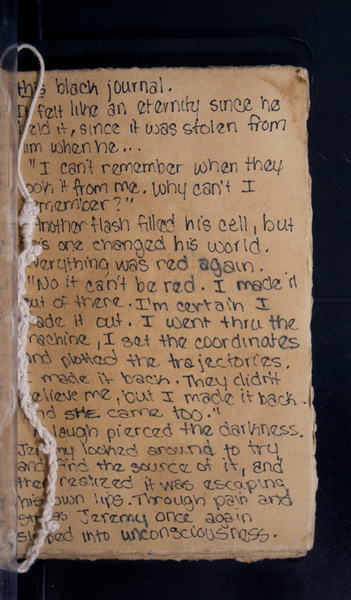 this black journal.
It felt like an eternity since he
held it, since it was stolen from
him when he...
"I can't remember when they
took it from me. Why can't I
remember?"
Another flash filled his cell, but
this one changed his world.
Everything was red again.
"No it can't be red. I made it
out of there. I'm certain I
made it out. I went thru the
machine, I set the coordinates
and plotted the trajectories.
I made it back. They didn't
believe me, but I made it back.
And SHE came too."
laugh pierced the darkness.
Jeremy looked around to try
and find the source of it, and
then realized it was escaping
his own lips. Through pain and
Jeremy once again
slipped into unconsciousness.